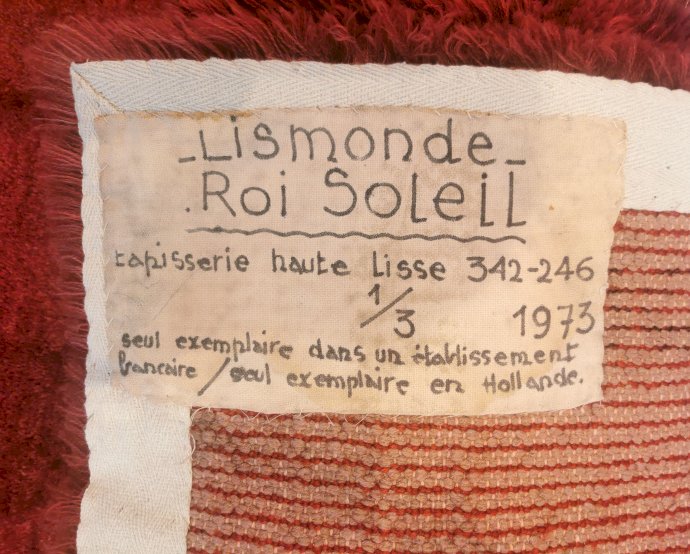 Lismonde
Roi Soleil
tapisserie haute lisse 342-246
1/3 1973
seul exemplaire dans un établissement
bancaire / seul exemplaire en Hollande.